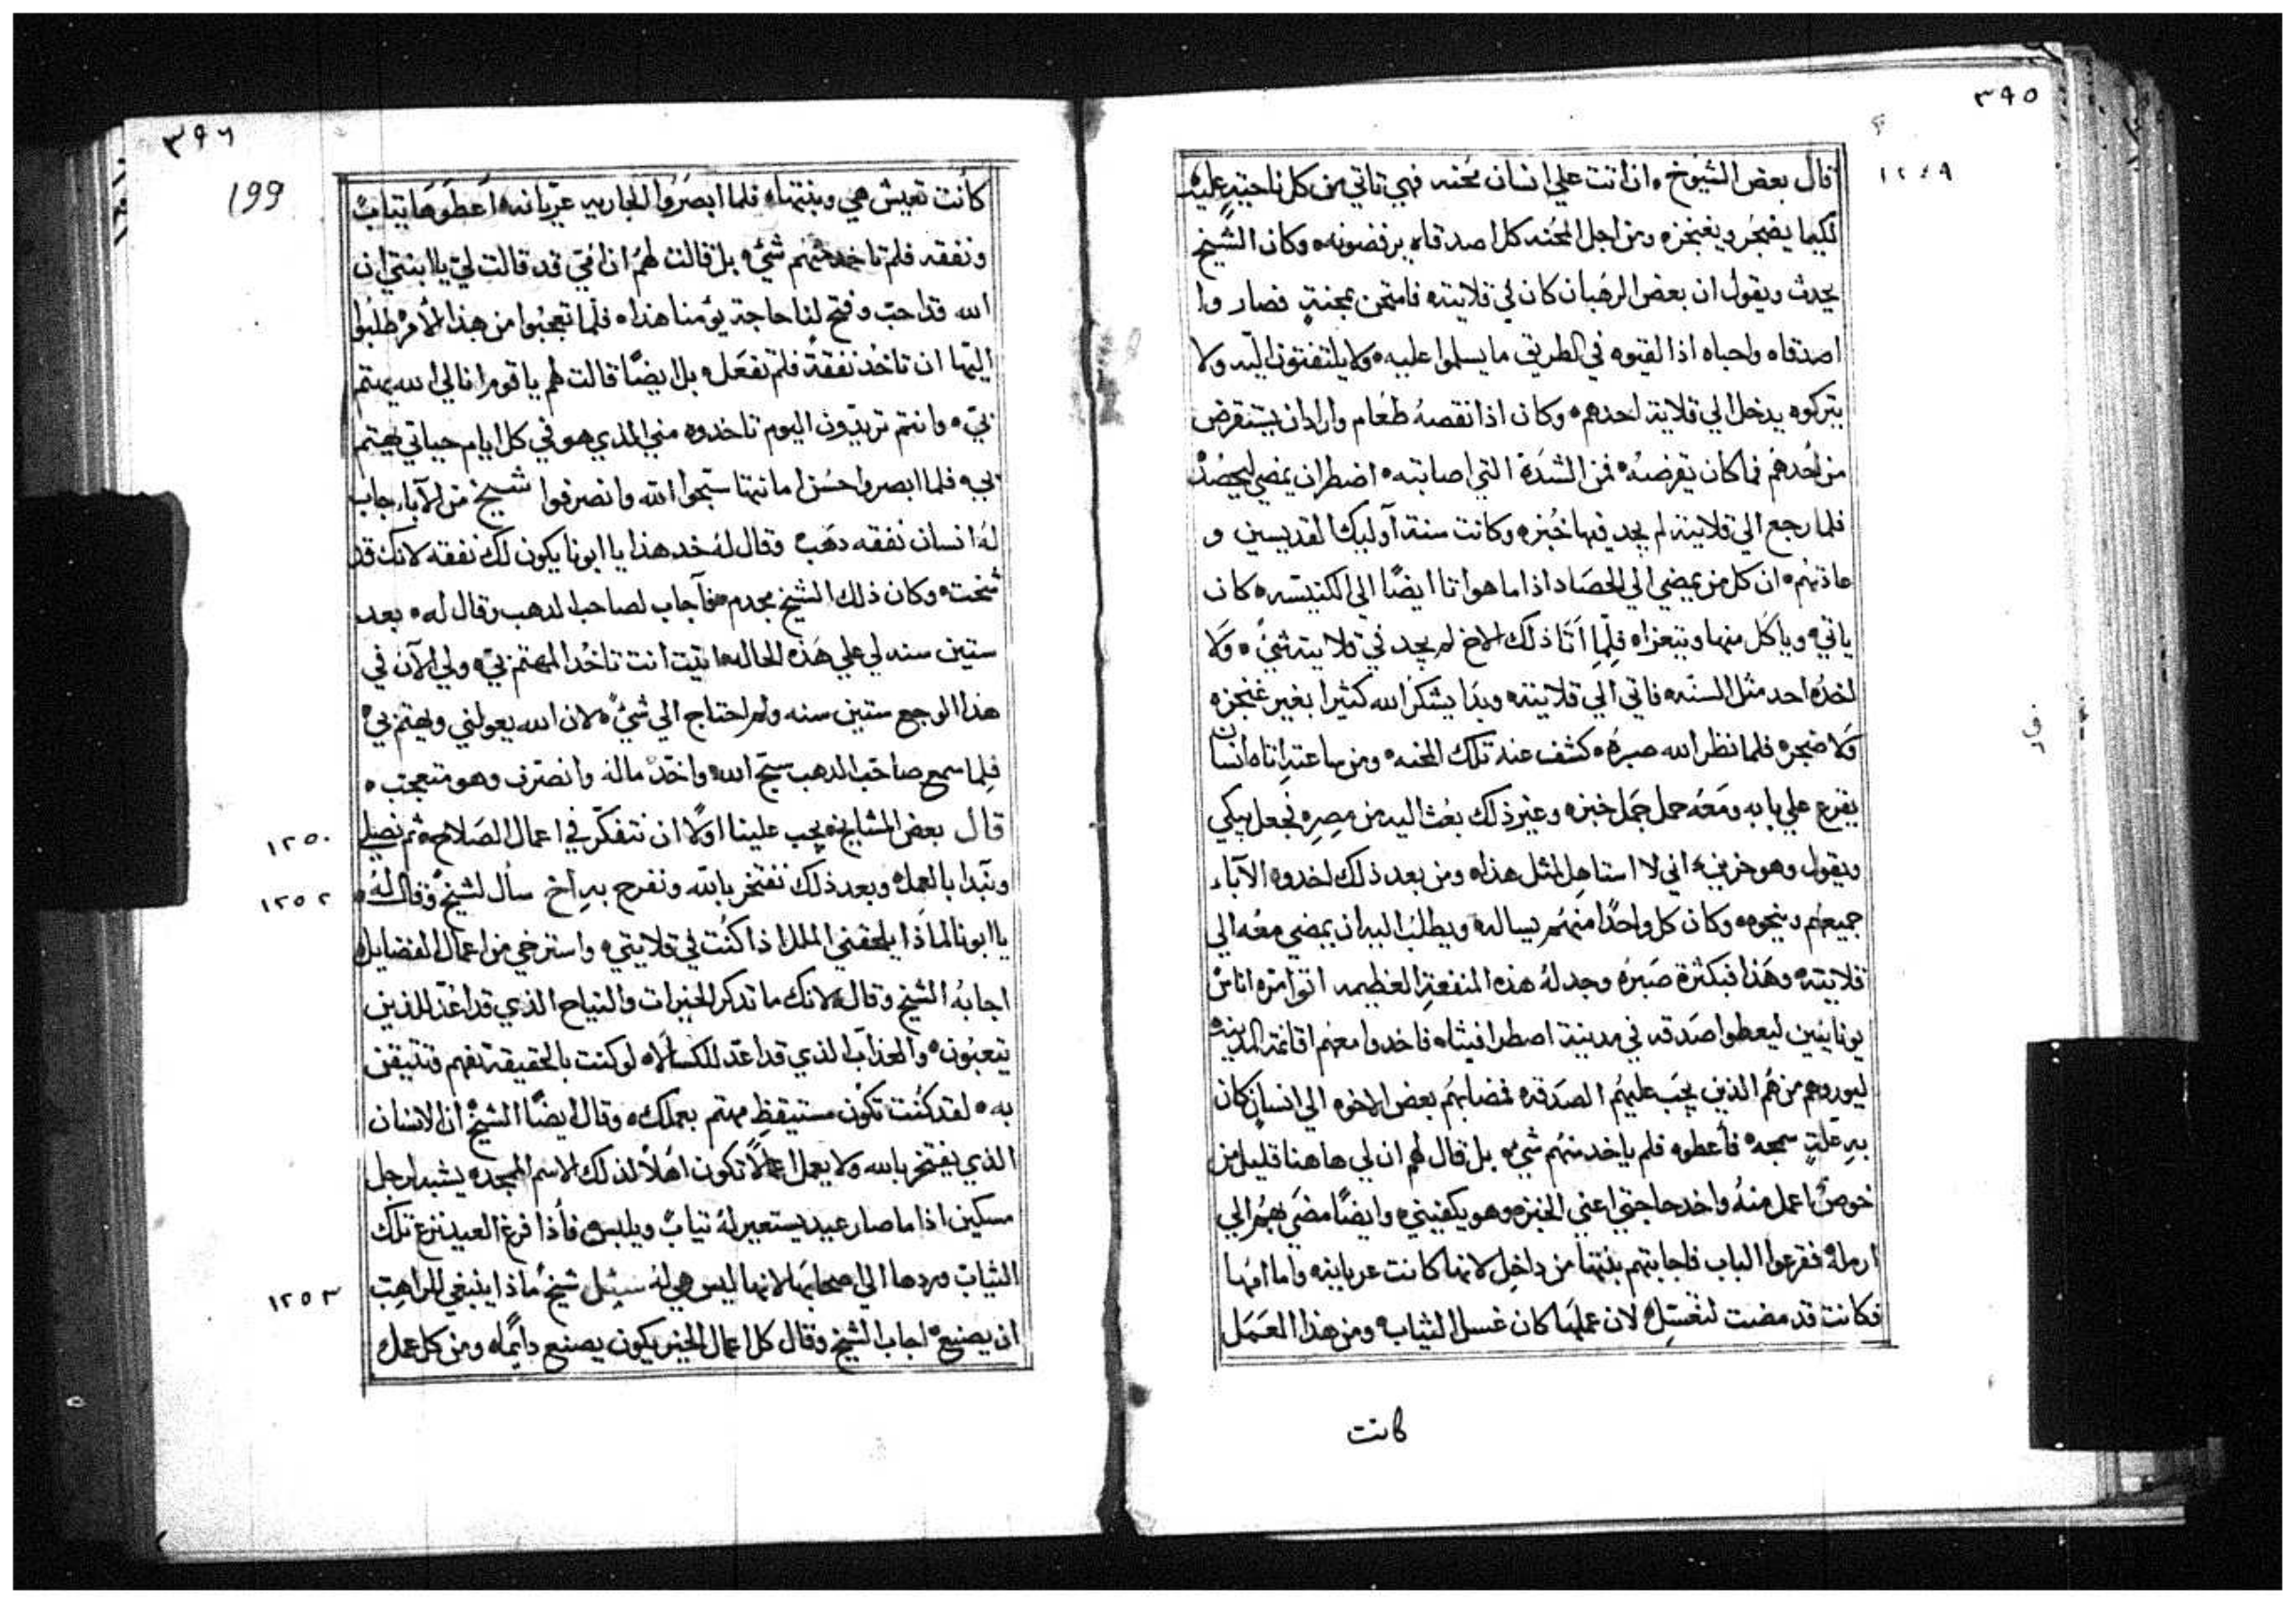 ٣٩٥
١٢٤٩
قال بعض الشيوخ ان أتت علي انسان محنه فهي تاتي من كل ناحية عليه
لكيما يضجر ويغنجزه ومن اجل المحنه كل اصدقاه يرفضونه وكان الشيخ
يحدث ويقول ان بعض الرهبان كان في قلايته فامتحن بمحنةٍ فصاروا
اصدقاه واحباه اذا لقيوه في الطريق ما يسلموا عليه ولا يلتفتون اليه ولا
يتركوه يدخل الي قلاية احدهم وكان اذا نقصهُ طعام واراد ان يستقرض
من أحدهم فما كان يقرضهُ فمن الشدة التي اصابته اضطر ان يمضي ليحصُد
فلما رجع الي قلايته لم يجد فيها خُبزه وكانت سنة أوليك القديسين و
عاذتهم ان كل من يمضي الي الحصاد اذا ما هو اتا ايضًا الي الكنيسه كان
ياتي وياكل منها ويتعزاه فلما أتا ذلك الاخ لم يجد في قلايته شي ولا
اخدُه احد مثل السنّه فاتي الي قلايته وبدا يشكر الله كثيرا بغير غنجزه
ولا ضجره فلما نظر الله صبرهُ كشف عنه تلك المحنه ومن ساعته اتاه انسان
يقرع علي بابه ومعه حمل جمل خبزه وغير ذلك بعُث اليه من مصر فجعل يبكي
ويقول وهو حزين اني لا استاهل لمثل هذاه ومن بعد ذلك اخدوه الآباء
جميعهم بنيحوه وكان كل واحدًا منهم يساله ويطلبُ اليه ان يمضي معُه الي
قلايته وهَذا فبكثرة صَبره وجد لهُ هذه المنفعة العظيمه اتوا مره اناس
يونانيين ليعطوا صَدقه في مدينة اصطرافيثاه فاخدوا معهم اقانمة المدينه
ليوروهم من هُم الذين يجب عليهم الصَدقه فمضا بهُم بعض الاخوه الي انسانٍ كان
به علةٍ سمجه فأعطوه فلم ياخد منهُم شيء بل قال لهم ان لي هاهنا قليل من
خوصٌ اعمل منهُ واخد حاجتي اعني الخبزه وهو يكفيني وايضًا مضي بهُم الي
ارملة فقرعوا الباب فاجابتهم بنتها من داخل لانها كانت عريانه واما امُها
فكانت قد مضت لتغسّل لان عملها كان غسل الثياب ومن هذا العَمَل
كانت
٣٩٦
199
كأنت تعيش هي وبنتها فلما ابصَروا الجاريه عريانه أعطوها ثيابً
ونفقه فلم تاخد منهم شيء بل قالت لهُم ان امّي قد قالت لي يا ابنتي ان
الله قد احبّ وفتح لنا حاجة يومنا هذاه فلما تعجبُوا من هذا الأمر طلبُوا
اليها ان تاخُد نفقة فلم تفعَل بل ايضًا قالت لهم يا قوم انا لي الله يهتم
بيّ وانتم تريدون اليوم تاخدوه مني الذي هو في كل ايام حياتي يهتم
بي فلما ابصروا حسن امانتها سبّحوا الله وانصرفوا شيخ من الآباء جاب
لهُ انسان نفقه دهَب وقال لهُ خد هذا يا ابونا يكون لك نفقه لانك قد
شخت وكان ذلك الشيخ مجدم فآجاب لصاحب الدهب وقال له بعد
ستين سنه لي علي هَذه الحاله اتيت انت تاخُد المهتم بيّ ولي الآن في
هذا الوجع ستين سنه ولم احتاج الي شيء لان الله يعولني ويهتم بي
فلما سمع صاحَب الدهب سبّح الله واخد ماله وانصرف وهو متعجب
١٢٥٠
قال بعض المشايخ يجب علينا اولًا ان نتفكر في اعمال الصَلاح ثم نصلي
١٢٥٢
ونبدا بالعمل وبعد ذلك نفتخر بالله ونفرح به اخ سأل لشيخ وقال لهُ
يا ابونا لماذا يلحقني الملل اذا كُنت في قلايتي واسترخي من اعمال الفضايل
اجابهُ الشيخ وقال لانك ما تدكر الخيرات والنياح الذي قد اعُدّ للذين
يتعبُون والعذاب الذي قد اعدّ للكسالاه لو كنت بالحقيقة تفهم وتتيقن
به لقد كُنت تكُون مستيقظِ مهتم بعملك وقال ايضًا الشيخ ان الانسان
الذي يفتخر بالله ولا يعمل اعمالًا تكون اهلًا لذلك الاسم الممجد يشبه لرجل
مسكين اذا ما صار عيد يستعير لهُ ثيابٌ ويلبس فأذا فرغ العيد نزع تلك
الثيابْ وردها الي اصحابها لانها ليس هي لهُ سيئل شيخ ماذا ينبغي للراهب
١٢٥٣
ان يصنع اجاب الشيخ وقال كل اعمال الخير يكون يصنع دايمًا ومن كل عمل